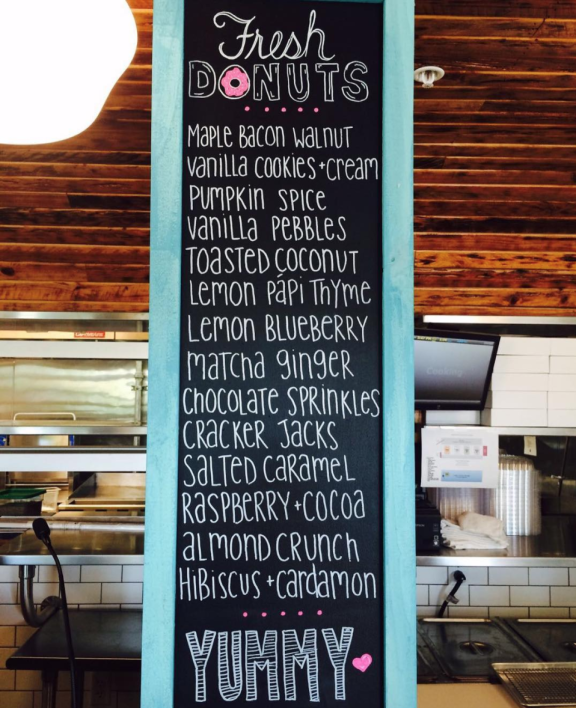 Fresh
DONUTS
MAPLE BACON WALNUT
VANILLA COOKIES+CREAM
PUMPKIN SPICE
VANILLA PEBBLES
TOASTED COCONUT
LEMON PÁPI THYME
LEMON BLUEBERRY
MATCHA GINGER
CHOCOLATE SPRINKLES
CRACKER JACKS
SALTED CARAMEL
RASPBERRY+COCOA
ALMOND CRUNCH
HIBISCUS+CARDAMON
YUMMY